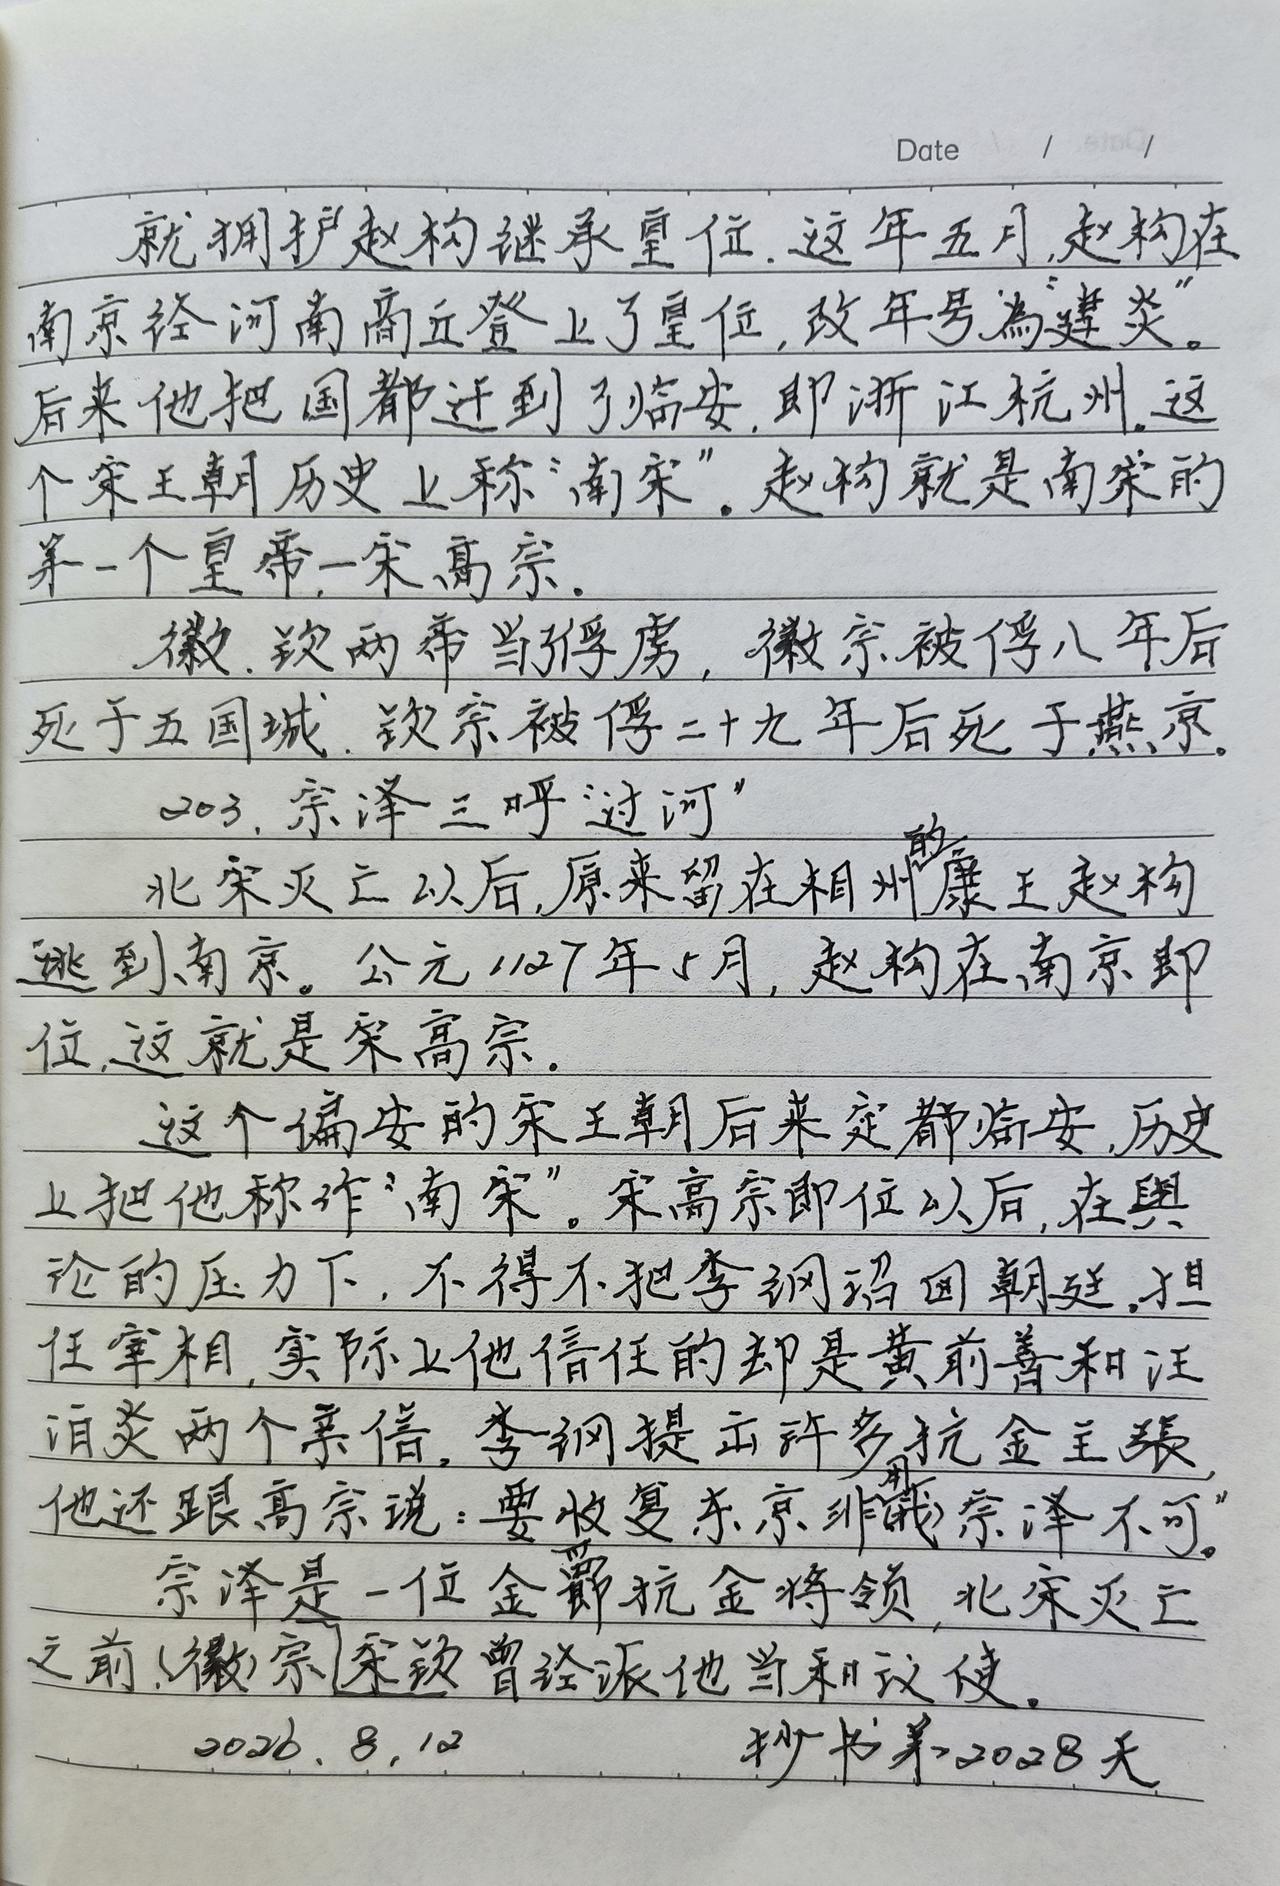 Date / /
就拥护赵构继承皇位.这年五月,赵构在
南京经河南商丘登上了皇位,改年号為"建炎"。
后来他把国都迁到了临安,即浙江杭州.这
个宋王朝历史上称"南宋"。赵构就是南宋的
第一个皇帝,一宋高宗.
徽.钦两帝当了俘虏,徽宗被俘八年后
死于五国城.钦宗被俘二十九年后死于燕京.
203.宗泽三呼"过河"
北宋灭亡以后,原来留在相州的康王赵构
逃到南京。公元1127年5月,赵构在南京即
位,这就是宋高宗.
这个偏安的宋王朝后来定都临安,历史
上把他称作"南宋"。宋高宗即位以后,在與
论的压力下.不得不把李纲招回朝廷.担
任宰相,实际上他信任的却是黄前善和汪
泊炎两个亲信.李纲提出許多抗金主張,
他还跟高宗说:要收复东京非用宗泽不可."
宗泽是一位金抗金将领,北宋灭亡
之前,(徽)宗宋钦曾经派他当和议使.
2026.8.12 抄书第2028天